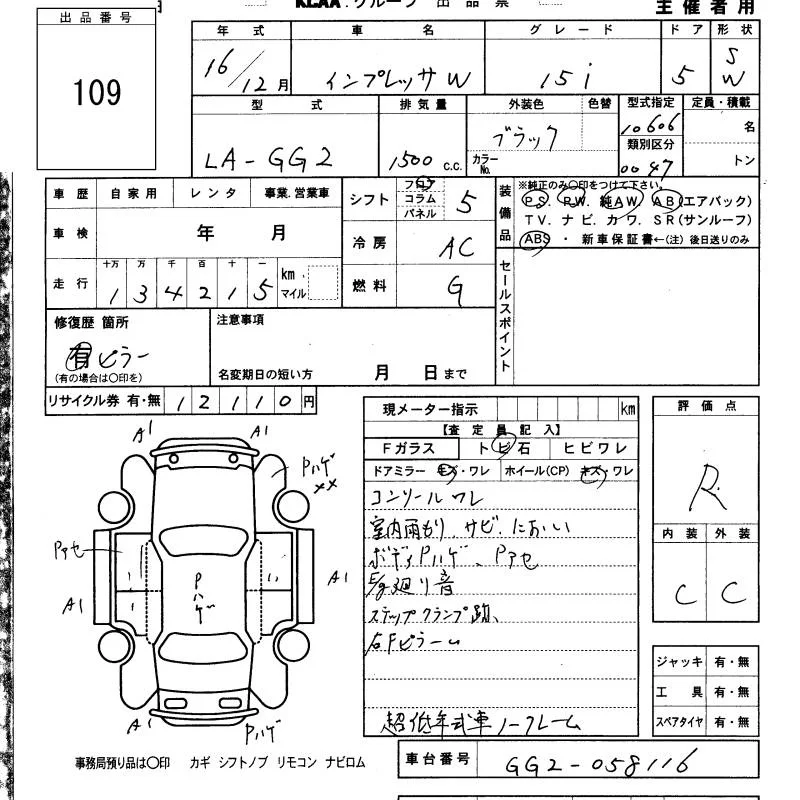 KCAA.グループ 出品票
主催者用
出品番号
109
年式 車名 グレード ドア 形状
16/12月 インプレッサW 15i 5 SW
型式 排気量 外装色 色替 型式指定 定員・積載
LA-GG2 1500 c.c. ブラック カラーNo. 10606 名
類別区分
0047 トン
車歴 自家用 レンタ 事業.営業車
シフト フロア コラム パネル 5
装備品 ※純正のみ〇印をつけて下さい。
PS. PW. 純AW. AB(エアバック)
TV. ナビ. カワ. SR(サンルーフ)
ABS ・ 新車保証書←(注)後日送りのみ
車検 年 月
冷房 AC
走行 十万 万 千 百 十 一 km マイル
1 3 4 2 1 5
燃料 G
セールスポイント
修復歴 箇所
有 ピラー
(有の場合は〇印を)
注意事項
名変期日の短い方 月 日まで
リサイクル券 有・無 12110円
現メーター指示 km
【査定員記入】
Fガラス トビ石 ヒビワレ
ドアミラー キズ・ワレ ホイール(CP) キズ・ワレ
コンソールワレ
室内雨もり、サビ、におい
ボディPハゲ、Pアセ
E/g廻り音
ステップクランプ跡、
右Fピラー
超低年式車ノークレーム
評価点
R
内装 外装
C C
ジャッキ 有・無
工具 有・無
スペアタイヤ 有・無
A1 A1
Pハゲ
××
Pアセ
A1 Pハゲ A1
A1 Pハゲ
事務局預り品は〇印 カギ シフトノブ リモコン ナビロム
車台番号 GG2-058116